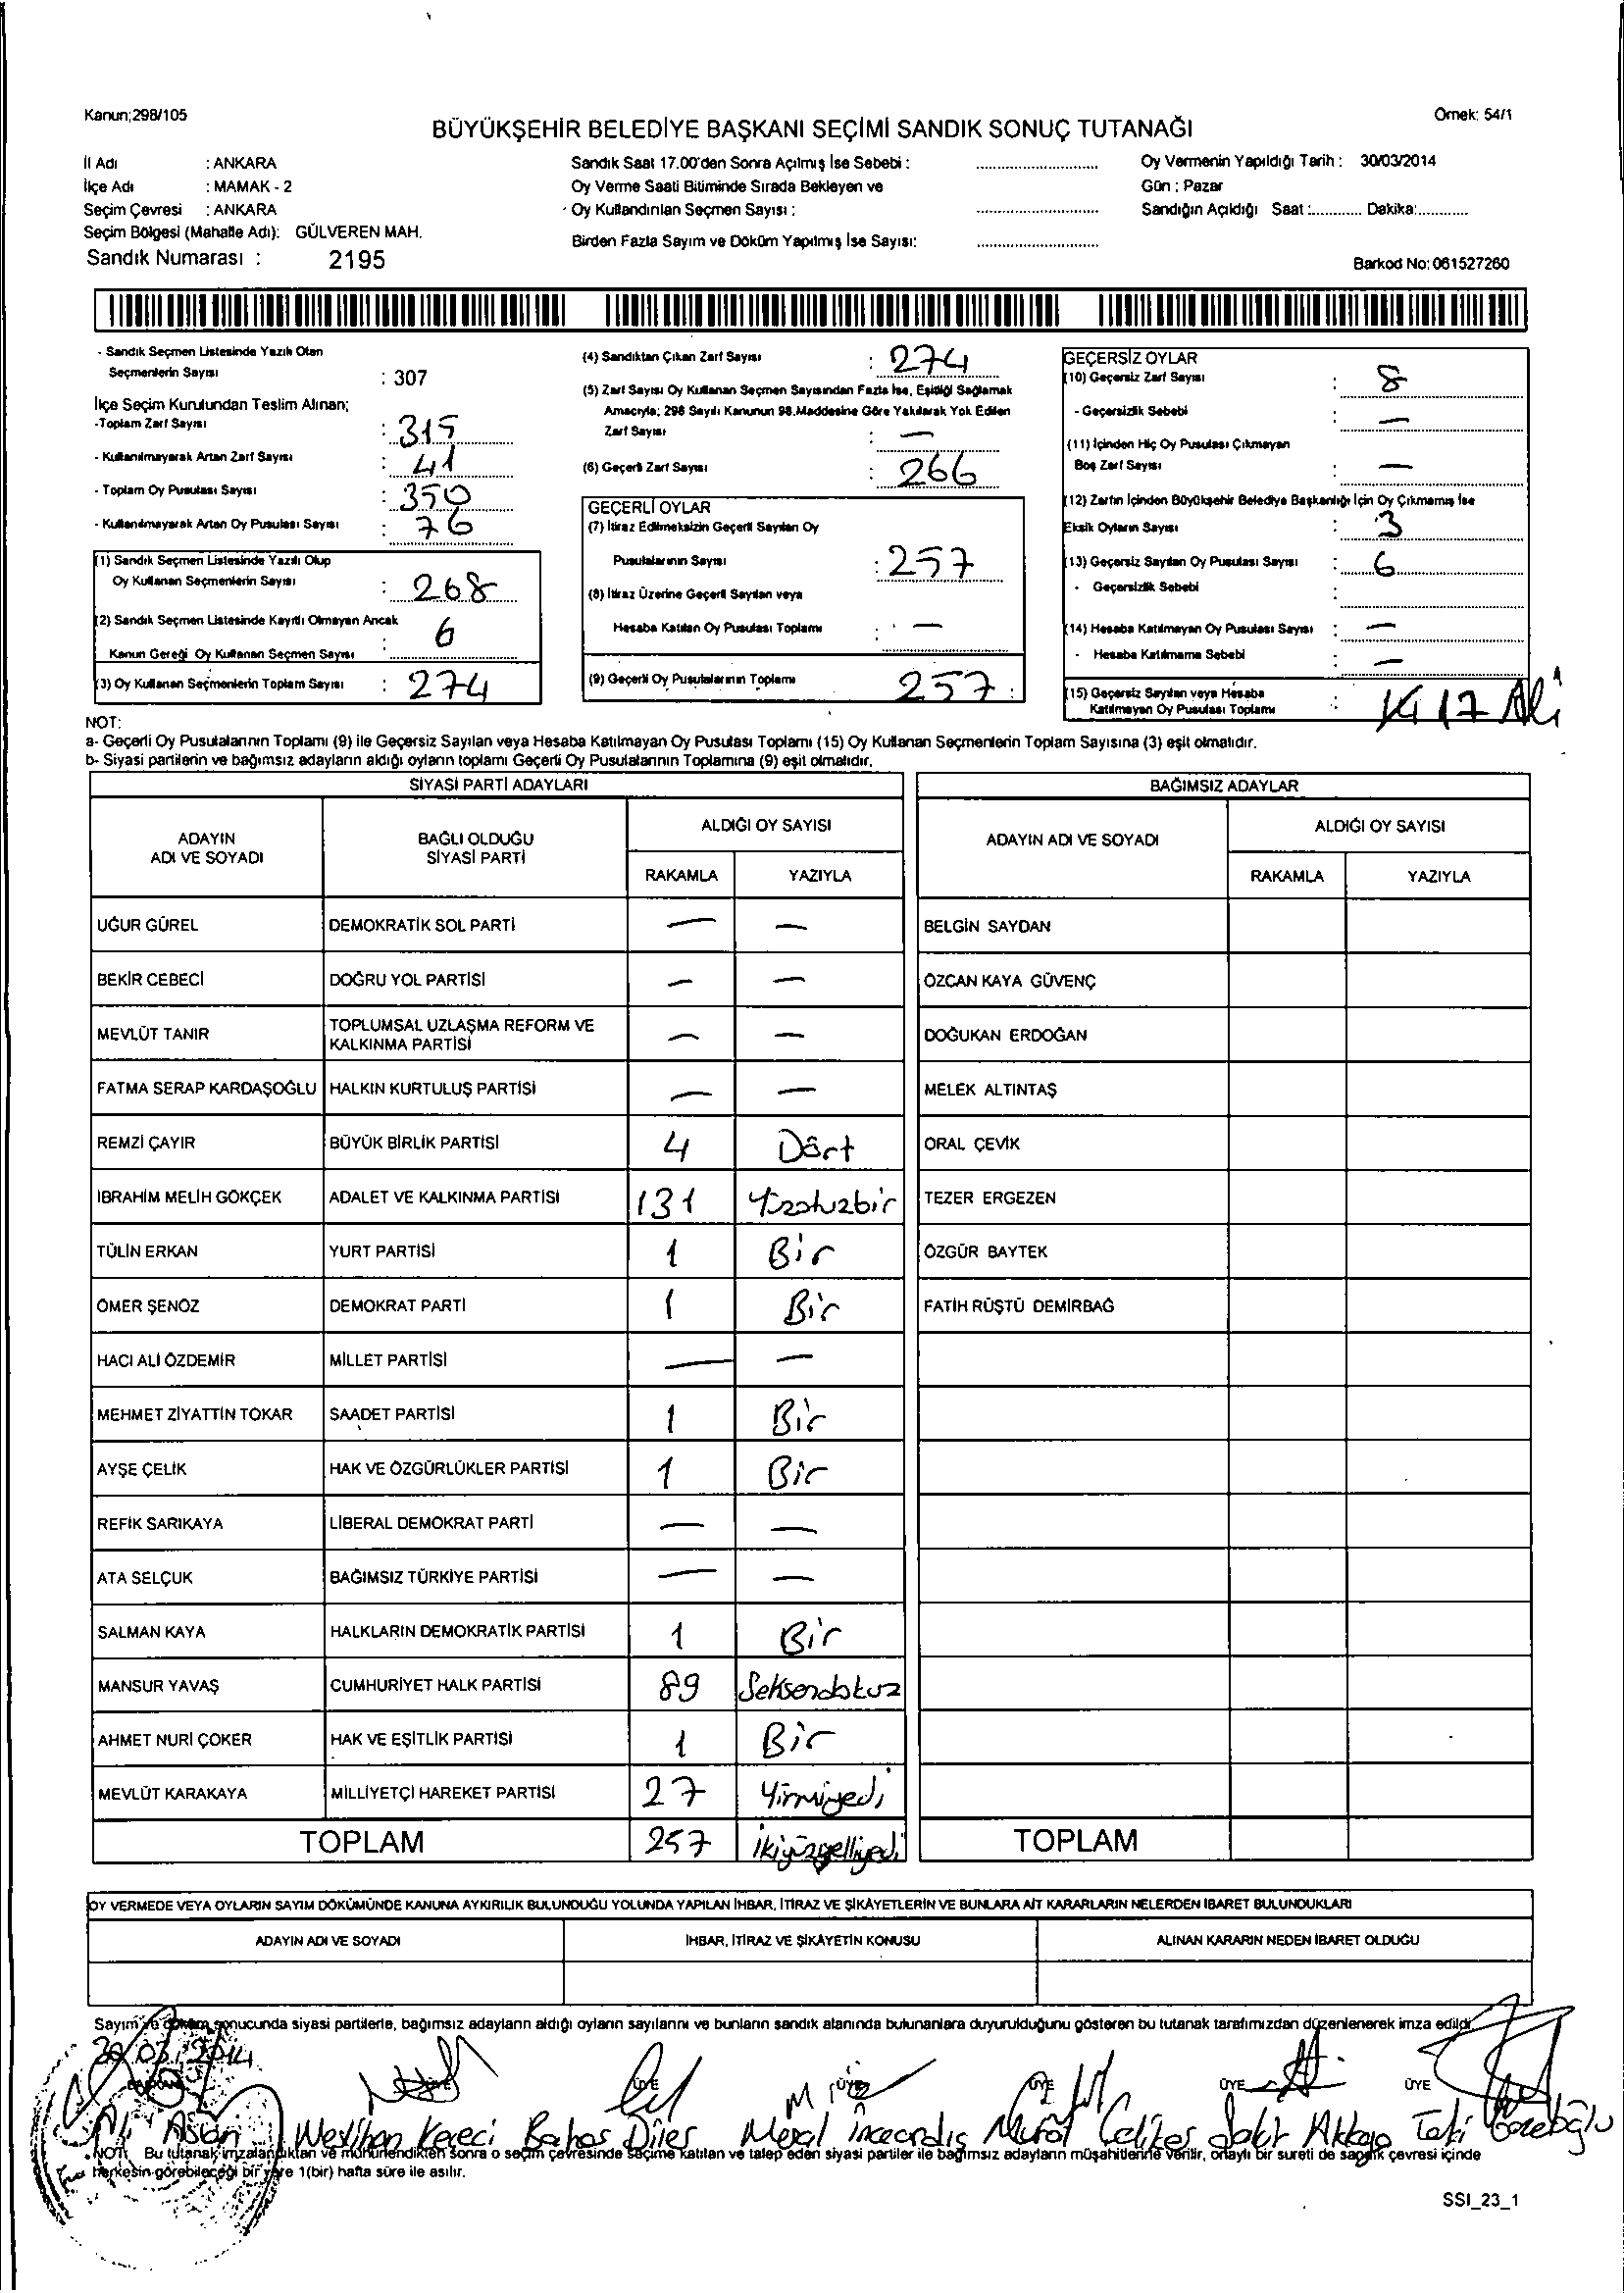 Kanun;298/105
Örnek: 54/1
BÜYÜKŞEHİR BELEDİYE BAŞKANI SEÇİMİ SANDIK SONUÇ TUTANAĞI
İl Adı : ANKARA
İlçe Adı : MAMAK - 2
Seçim Çevresi : ANKARA
Seçim Bölgesi (Mahalle Adı): GÜLVEREN MAH.
Sandık Numarası : 2195
Sandık Saat 17.00'den Sonra Açılmış İse Sebebi : ..............................
Oy Verme Saati Bitiminde Sırada Bekleyen ve
Oy Kullandırılan Seçmen Sayısı : ..............................
Birden Fazla Sayım ve Döküm Yapılmış İse Sayısı: ..............................
Oy Vermenin Yapıldığı Tarih : 30/03/2014
Gün : Pazar
Sandığın Açıldığı Saat :............ Dakika:............
Barkod No: 061527260
- Sandık Seçmen Listesinde Yazılı Olan
Seçmenlerin Sayısı : 307
İlçe Seçim Kurulundan Teslim Alınan;
-Toplam Zarf Sayısı : 315
- Kullanılmayarak Artan Zarf Sayısı : 41
- Toplam Oy Pusulası Sayısı : 350
- Kullanılmayarak Artan Oy Pusulası Sayısı : 76
(1) Sandık Seçmen Listesinde Yazılı Olup
Oy Kullanan Seçmenlerin Sayısı : 268
(2) Sandık Seçmen Listesinde Kayıtlı Olmayan Ancak
Kanun Gereği Oy Kullanan Seçmen Sayısı : 6
(3) Oy Kullanan Seçmenlerin Toplam Sayısı : 274
(4) Sandıktan Çıkan Zarf Sayısı : 274
(5) Zarf Sayısı Oy Kullanan Seçmen Sayısından Fazla İse, Eşitliği Sağlamak
Amacıyla; 298 Sayılı Kanunun 98.Maddesine Göre Yakılarak Yok Edilen
Zarf Sayısı : —
(6) Geçerli Zarf Sayısı : 266
GEÇERLİ OYLAR
(7) İtiraz Edilmeksizin Geçerli Sayılan Oy
Pusulalarının Sayısı : 257
(8) İtiraz Üzerine Geçerli Sayılan veya
Hesaba Katılan Oy Pusulası Toplamı : —
(9) Geçerli Oy Pusulalarının Toplamı 257 :
GEÇERSİZ OYLAR
(10) Geçersiz Zarf Sayısı : 8
- Geçersizlik Sebebi : —
(11) İçinden Hiç Oy Pusulası Çıkmayan
Boş Zarf Sayısı : —
(12) Zarfın İçinden Büyükşehir Belediye Başkanlığı İçin Oy Çıkmamış İse
Eksik Oyların Sayısı : 3
(13) Geçersiz Sayılan Oy Pusulası Sayısı : 6
- Geçersizlik Sebebi :
(14) Hesaba Katılmayan Oy Pusulası Sayısı : —
- Hesaba Katılmama Sebebi : —
(15) Geçersiz Sayılan veya Hesaba
Katılmayan Oy Pusulası Toplamı : 17 Ali
NOT:
a- Geçerli Oy Pusulalarının Toplamı (9) ile Geçersiz Sayılan veya Hesaba Katılmayan Oy Pusulası Toplamı (15) Oy Kullanan Seçmenlerin Toplam Sayısına (3) eşit olmalıdır.
b- Siyasi partilerin ve bağımsız adayların aldığı oyların toplamı Geçerli Oy Pusulalarının Toplamına (9) eşit olmalıdır.
SİYASİ PARTİ ADAYLARI
ADAYIN ADI VE SOYADI BAĞLI OLDUĞU SİYASİ PARTİ ALDIĞI OY SAYISI
RAKAMLA YAZIYLA
UĞUR GÜREL DEMOKRATİK SOL PARTİ — —
BEKİR CEBECİ DOĞRU YOL PARTİSİ — —
MEVLÜT TANIR TOPLUMSAL UZLAŞMA REFORM VE KALKINMA PARTİSİ — —
FATMA SERAP KARDAŞOĞLU HALKIN KURTULUŞ PARTİSİ — —
REMZİ ÇAYIR BÜYÜK BİRLİK PARTİSİ 4 Dört
İBRAHİM MELİH GÖKÇEK ADALET VE KALKINMA PARTİSİ 131 Yüzotuzbir
TÜLİN ERKAN YURT PARTİSİ 1 Bir
ÖMER ŞENÖZ DEMOKRAT PARTİ 1 Bir
HACI ALİ ÖZDEMİR MİLLET PARTİSİ — —
MEHMET ZİYATTİN TOKAR SAADET PARTİSİ 1 Bir
AYŞE ÇELİK HAK VE ÖZGÜRLÜKLER PARTİSİ 1 Bir
REFİK SARIKAYA LİBERAL DEMOKRAT PARTİ — —
ATA SELÇUK BAĞIMSIZ TÜRKİYE PARTİSİ — —
SALMAN KAYA HALKLARIN DEMOKRATİK PARTİSİ 1 Bir
MANSUR YAVAŞ CUMHURİYET HALK PARTİSİ 89 Seksendokuz
AHMET NURİ ÇOKER HAK VE EŞİTLİK PARTİSİ 1 Bir
MEVLÜT KARAKAYA MİLLİYETÇİ HAREKET PARTİSİ 27 Yirmiyedi
TOPLAM 257 ikiyüzelliyedi
BAĞIMSIZ ADAYLAR
ADAYIN ADI VE SOYADI ALDIĞI OY SAYISI
RAKAMLA YAZIYLA
BELGİN SAYDAN
ÖZCAN KAYA GÜVENÇ
DOĞUKAN ERDOĞAN
MELEK ALTINTAŞ
ORAL ÇEVİK
TEZER ERGEZEN
ÖZGÜR BAYTEK
FATİH RÜŞTÜ DEMİRBAĞ
TOPLAM
OY VERMEDE VEYA OYLARIN SAYIM DÖKÜMÜNDE KANUNA AYKIRILIK BULUNDUĞU YOLUNDA YAPILAN İHBAR, İTİRAZ VE ŞİKÂYETLERİN VE BUNLARA AİT KARARLARIN NELERDEN İBARET BULUNDUKLARI
ADAYIN ADI VE SOYADI İHBAR, İTİRAZ VE ŞİKÂYETİN KONUSU ALINAN KARARIN NEDEN İBARET OLDUĞU
Sayım ve döküm sonucunda siyasi partilerle, bağımsız adayların aldığı oyların sayılarını ve bunların sandık alanında bulunanlara duyurulduğunu gösteren bu tutanak tarafımızdan düzenlenerek imza edildi.
30.03.2014
BAŞKAN ÜYE ÜYE ÜYE ÜYE ÜYE ÜYE
Ali Aslan Neslihan Kereci Diler Meral İncecardış Murat Çeliker Şakir Akkaya
NOT: Bu tutanak imzalandıktan ve mühürlendikten sonra o seçim çevresinde seçime katılan ve talep eden siyasi partiler ile bağımsız adayların müşahitlerine verilir, onaylı bir sureti de sandık çevresi içinde
herkesin görebileceği bir yere 1(bir) hafta süre ile asılır.
SSI_23_1